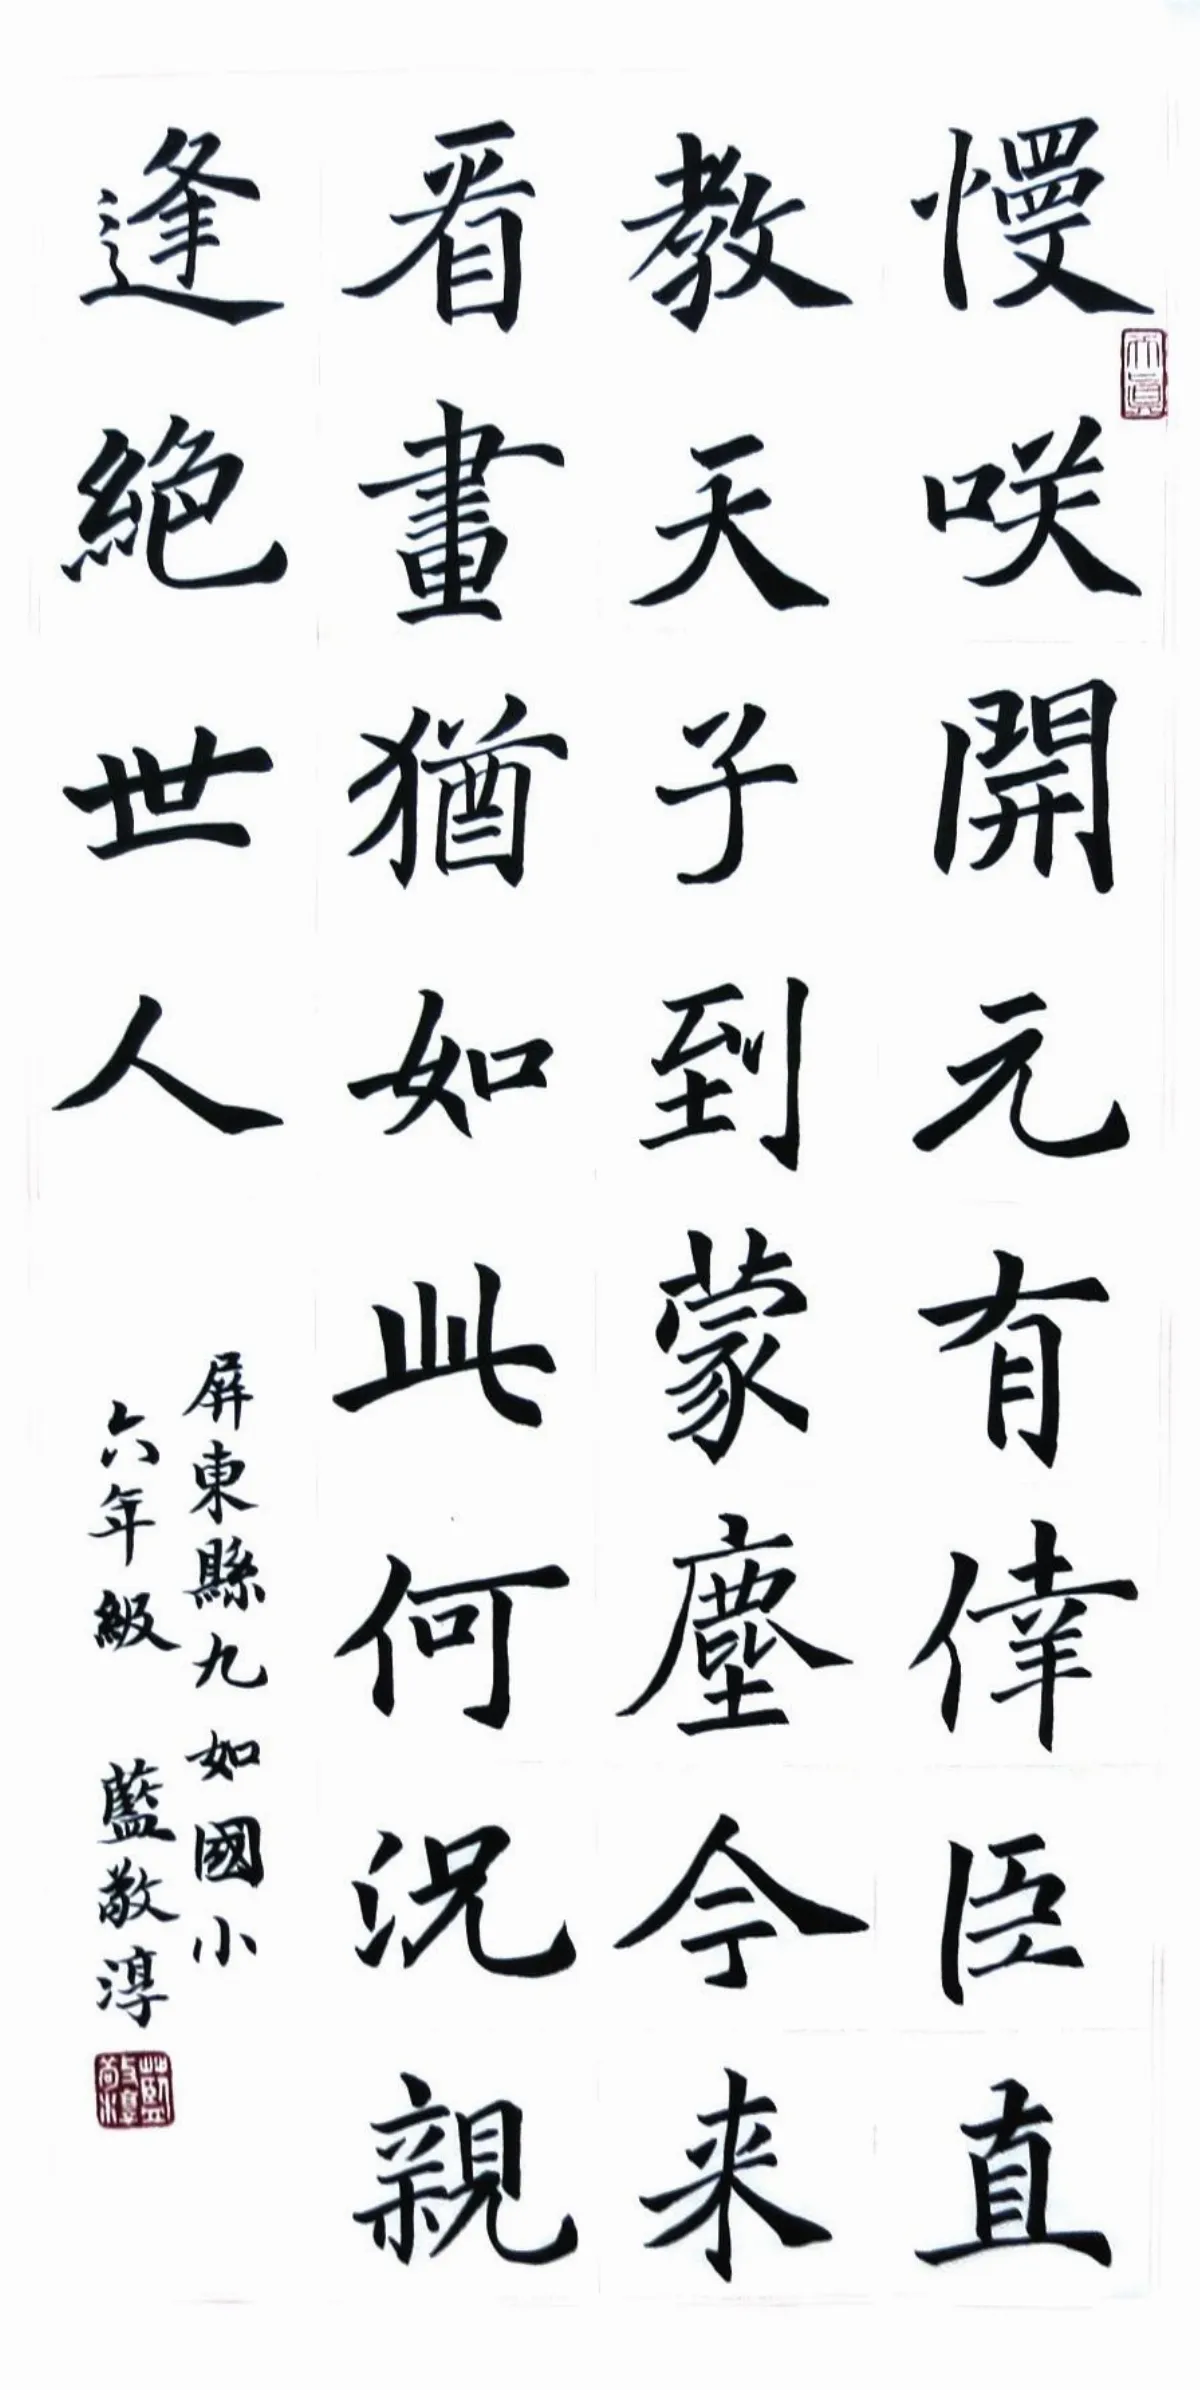 慢咲開元有倖臣直
教天子到蒙塵今来
看畫猶如此何況親
逢絕世人
屏東縣九如國小
六年級 藍敬淳
藍敬淳